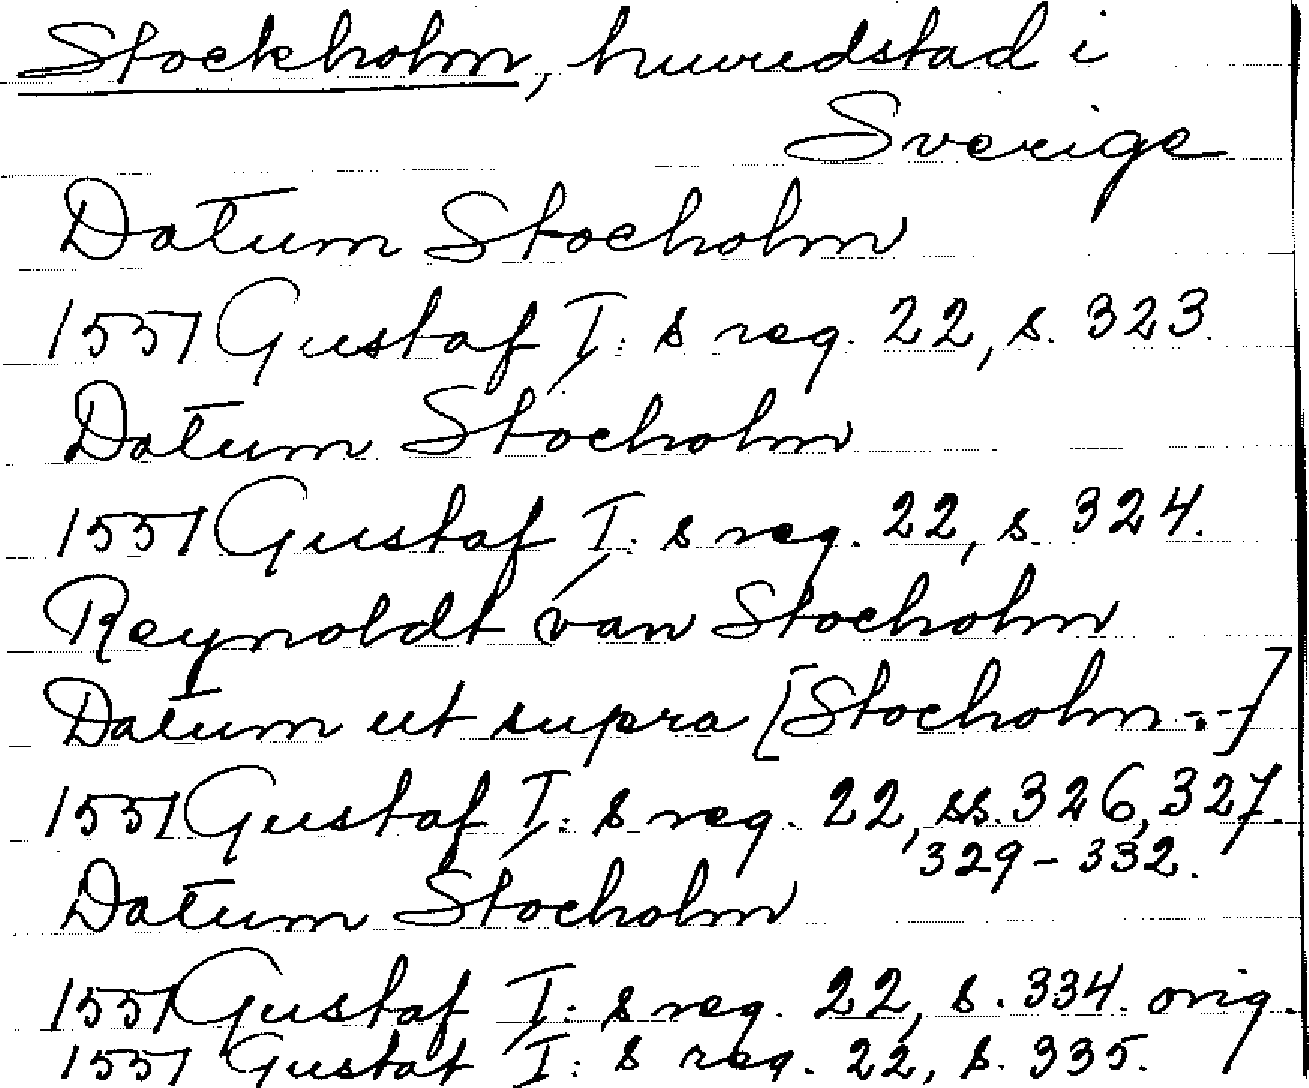 Stockholm, huvudstad i
Sverige
Datum Stocholm
1551 Gustaf I:s reg. 22, s. 323.
Datum Stocholm
1551 Gustaf I:s reg. 22, s. 324.
Reynoldt van Stocholm
Datum ut supra [Stocholm--]
1551 Gustaf I:s reg. 22, ss. 326, 327.
329-332.
Datum Stocholm
1551 Gustaf I:s reg. 22, s. 334. orig.
1551 Gustaf I:s reg. 22, s. 335.